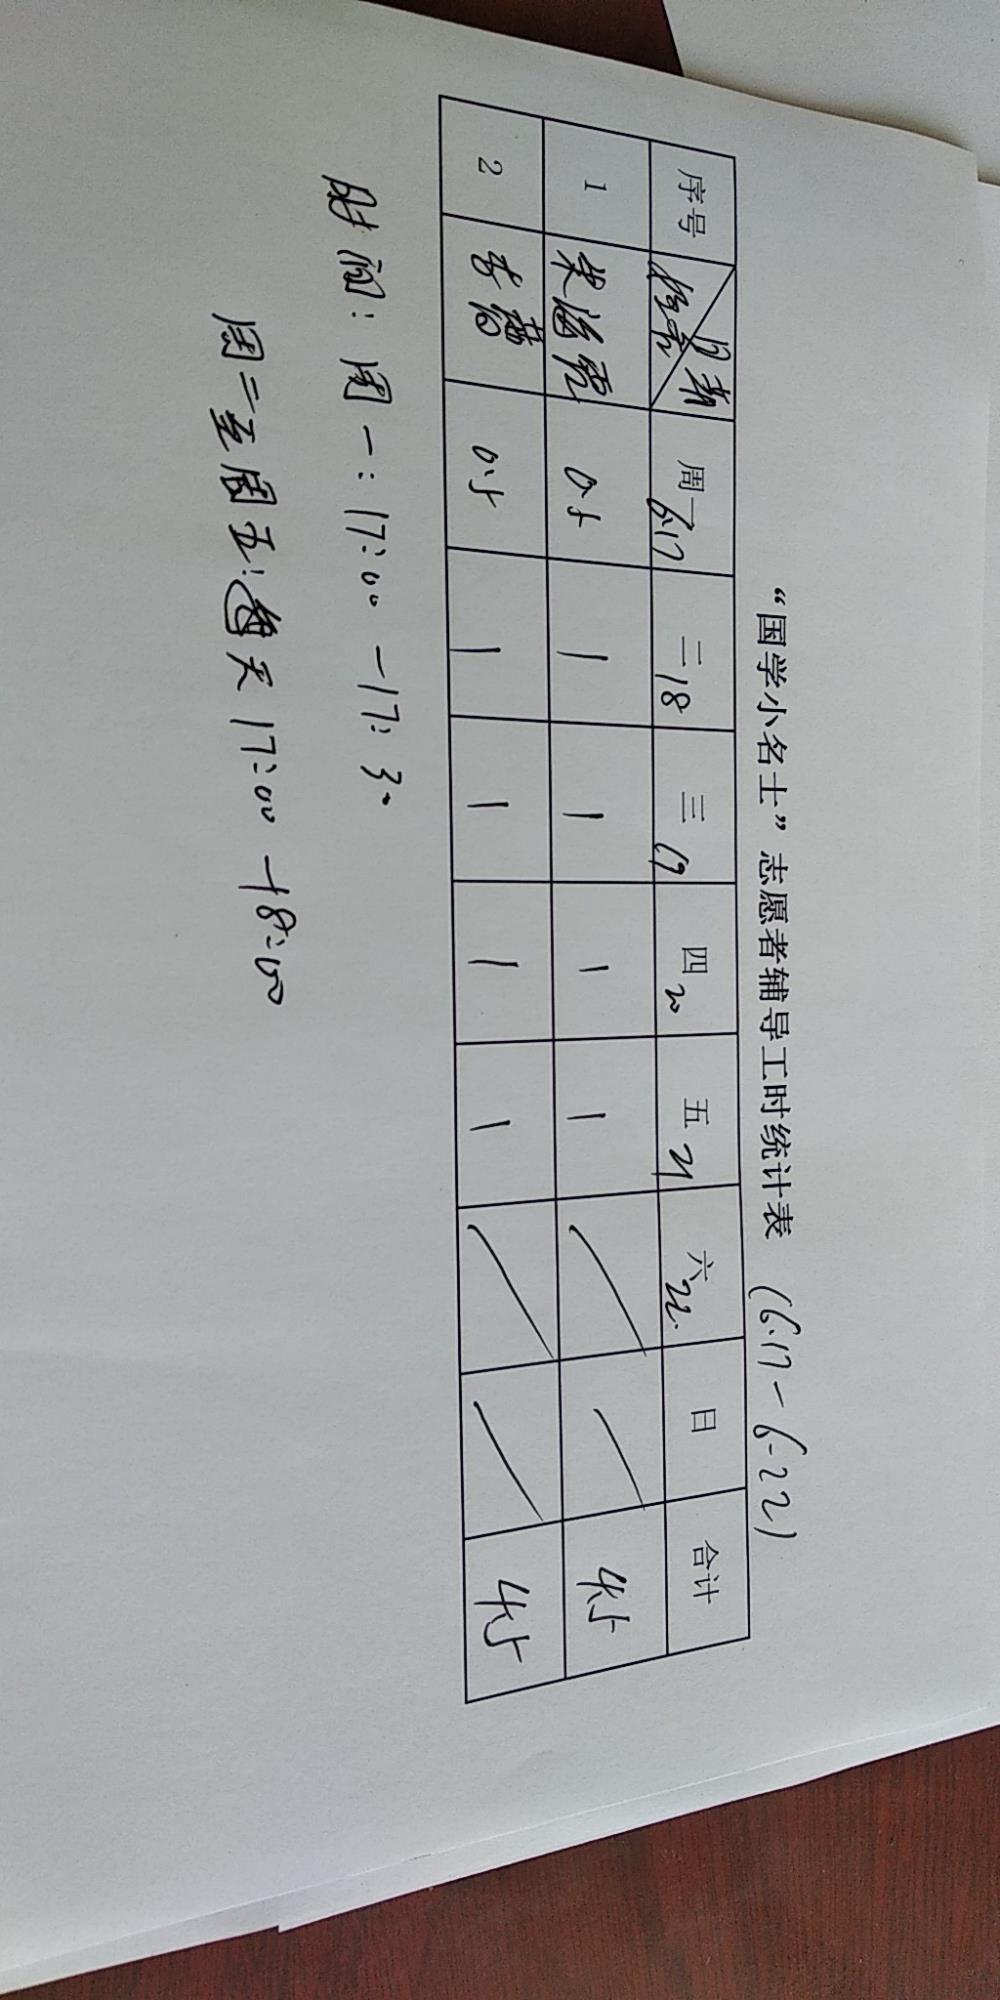 “国学小名士”志愿者辅导工时统计表 (6.17-6.22)
序号 日期 周一6.17 二18 三19 四20 五21 六22. 日 合计
1 0.5 1 1 1 1 4.5
2 0.5 1 1 1 1 4.5
时间: 周一: 17:00-17:30
周二至周五: 每天17:00-18:00